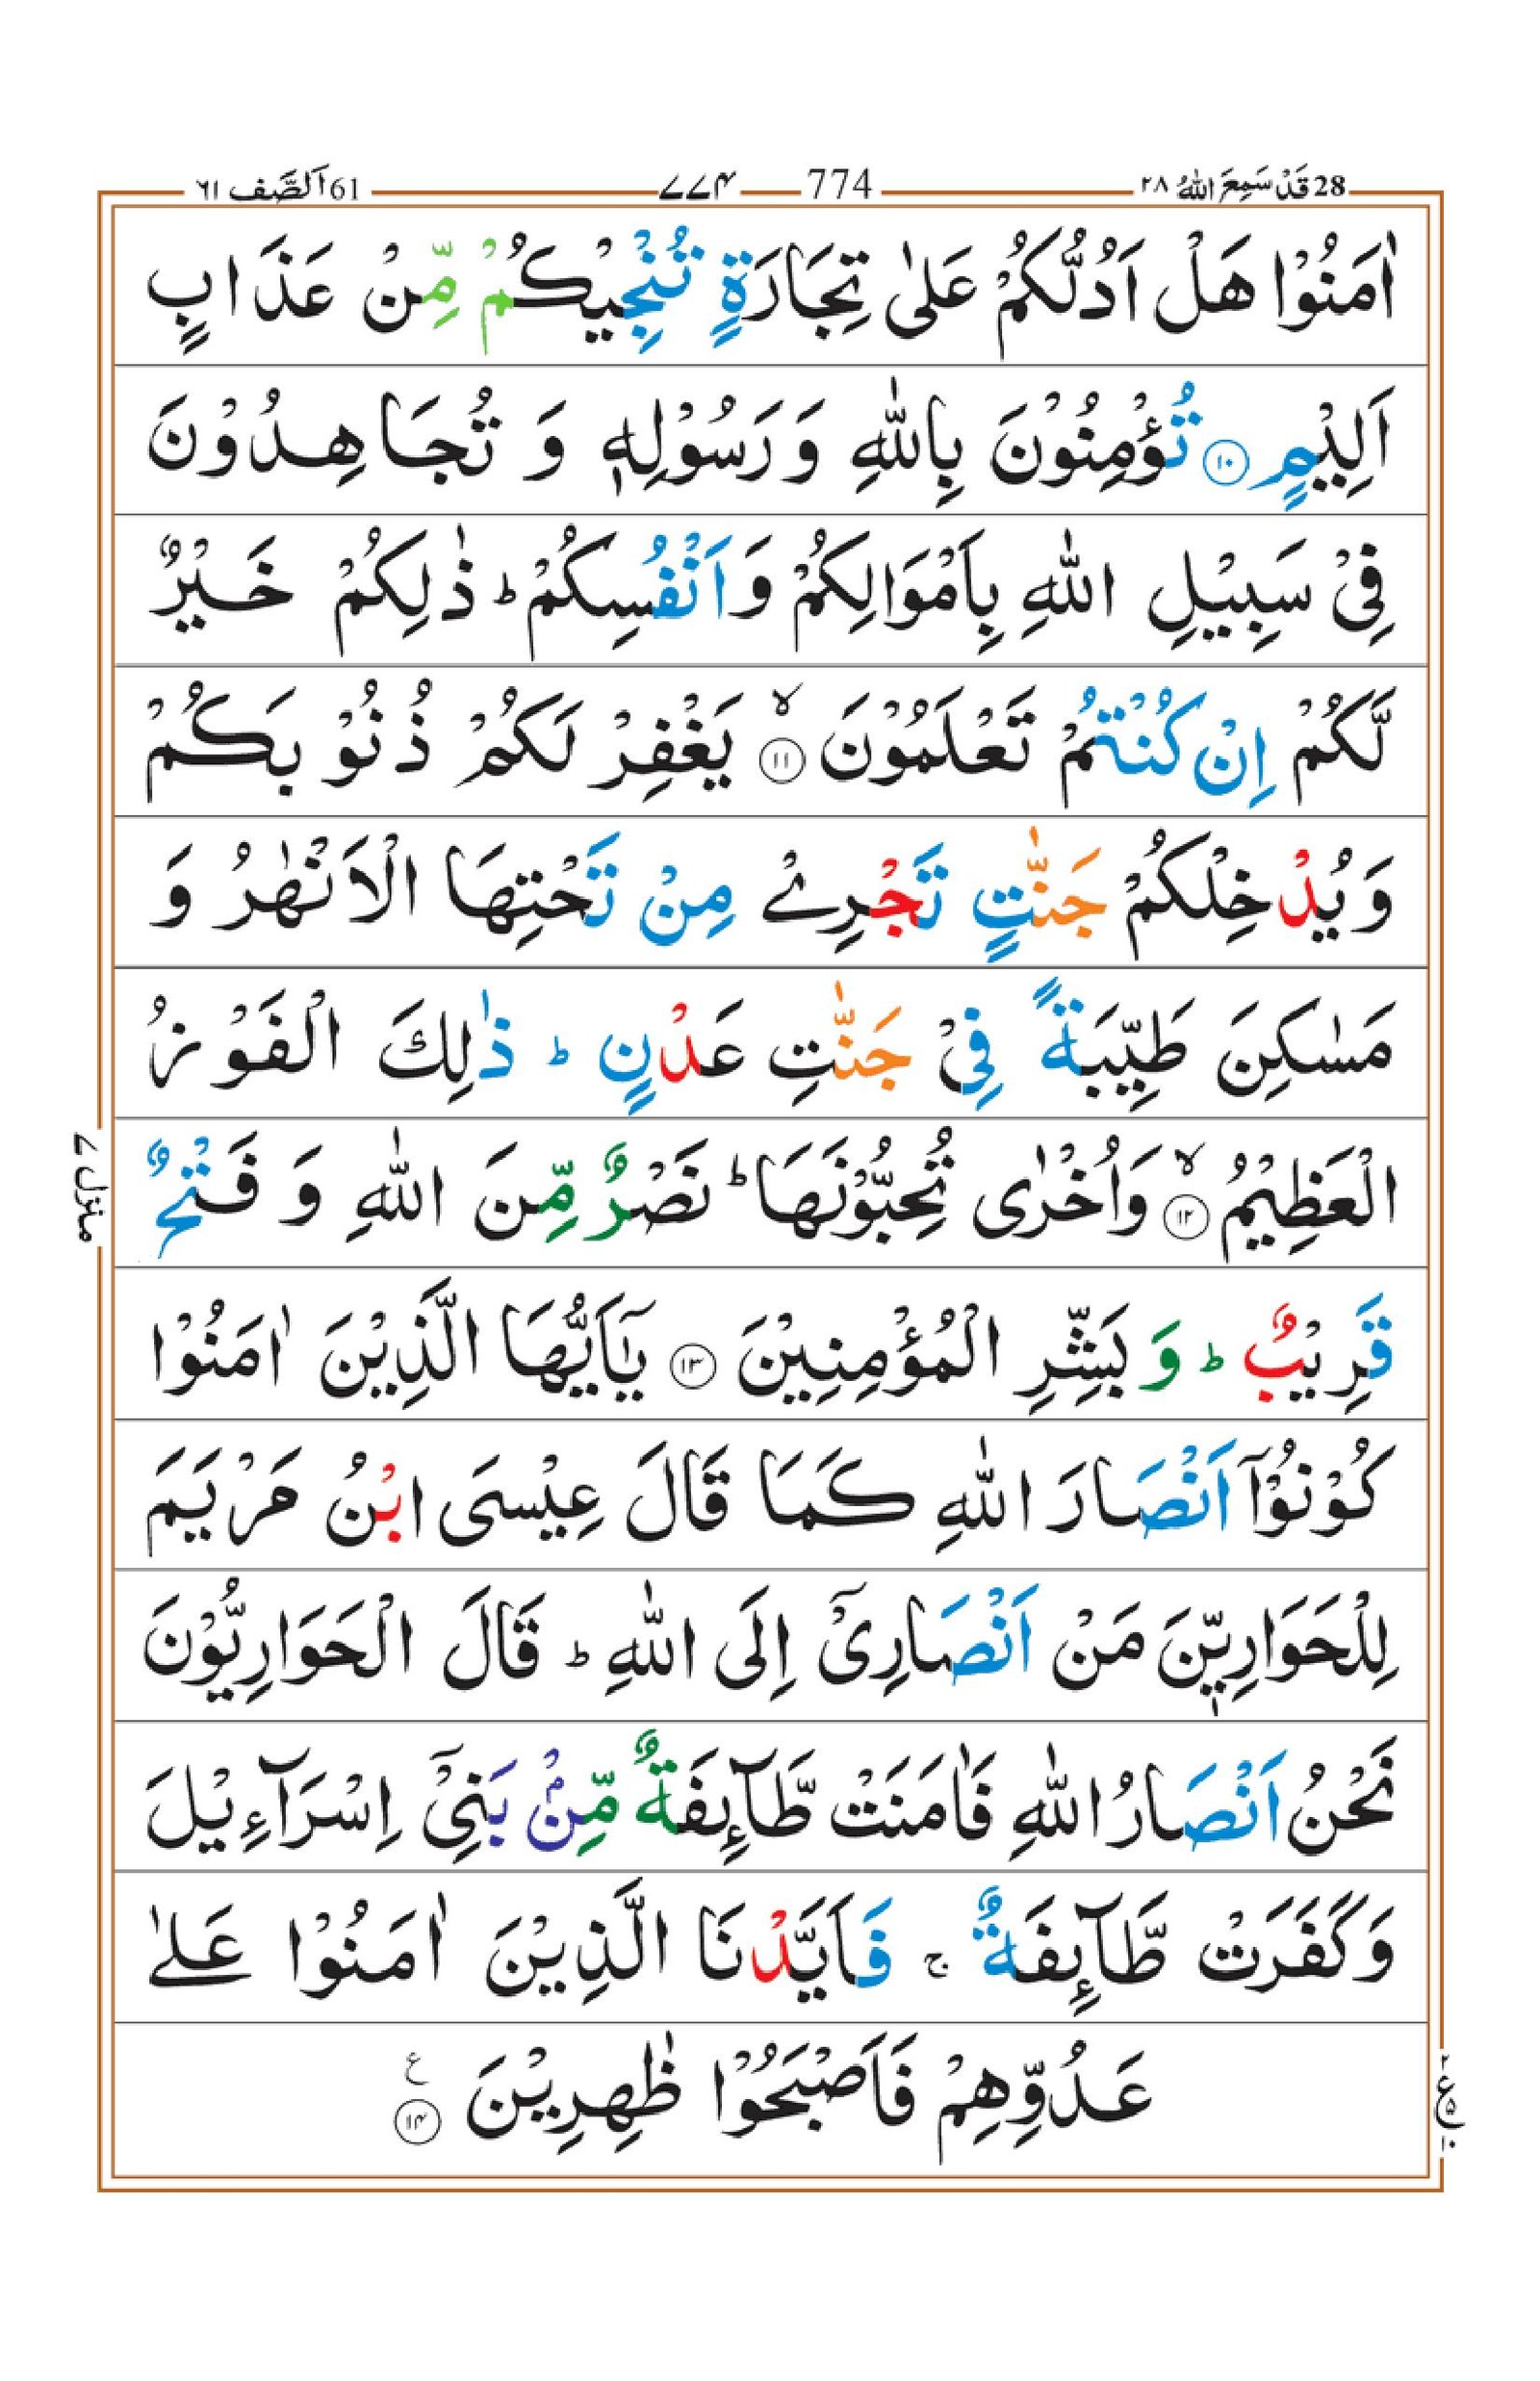 28 قَدْ سَمِعَ اللّٰهُ ٢٨ 774 ٧٧۴ 61 اَلصَّف ٦١
اٰمَنُوْا هَلْ اَدُلُّكُمْ عَلٰى تِجَارَةٍ تُنْجِيْكُمْ مِّنْ عَذَابٍ
اَلِيْمٍ ۝١٠ تُؤْمِنُوْنَ بِاللّٰهِ وَ رَسُوْلِهٖ وَ تُجَاهِدُوْنَ
فِيْ سَبِيْلِ اللّٰهِ بِاَمْوَالِكُمْ وَ اَنْفُسِكُمْ ؕ ذٰلِكُمْ خَيْرٌ
لَّكُمْ اِنْ كُنْتُمْ تَعْلَمُوْنَ ۙ۝١١ يَغْفِرْ لَكُمْ ذُنُوْبَكُمْ
وَ يُدْخِلْكُمْ جَنّٰتٍ تَجْرِيْ مِنْ تَحْتِهَا الْاَنْهٰرُ وَ
مَسٰكِنَ طَيِّبَةً فِيْ جَنّٰتِ عَدْنٍ ؕ ذٰلِكَ الْفَوْزُ
الْعَظِيْمُ ۙ۝١٢ وَ اُخْرٰى تُحِبُّوْنَهَا ؕ نَصْرٌ مِّنَ اللّٰهِ وَ فَتْحٌ
قَرِيْبٌ ؕ وَ بَشِّرِ الْمُؤْمِنِيْنَ ۝١٣ يٰۤاَيُّهَا الَّذِيْنَ اٰمَنُوْا
كُوْنُوْۤا اَنْصَارَ اللّٰهِ كَمَا قَالَ عِيْسَى ابْنُ مَرْيَمَ
لِلْحَوَارِيّٖنَ مَنْ اَنْصَارِيْۤ اِلَى اللّٰهِ ؕ قَالَ الْحَوَارِيُّوْنَ
نَحْنُ اَنْصَارُ اللّٰهِ فَاٰمَنَتْ طَّآىِٕفَةٌ مِّنْۢ بَنِيْۤ اِسْرَآءِيْلَ
وَ كَفَرَتْ طَّآىِٕفَةٌ ۚ فَاَيَّدْنَا الَّذِيْنَ اٰمَنُوْا عَلٰى
عَدُوِّهِمْ فَاَصْبَحُوْا ظٰهِرِيْنَ ۝١۴ ع
منزل ٧
ع